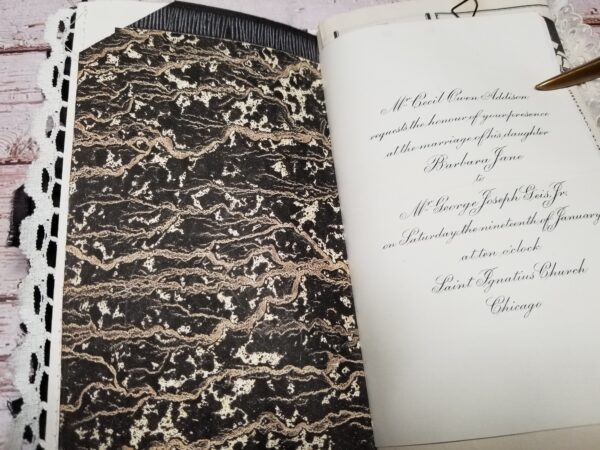 Mr Cecil Owen Addison
requests the honour of your presence
at the marriage of his daughter
Barbara Jane
to
Mr George Joseph Geis, Jr.
on Saturday, the nineteenth of January
at ten o'clock
Saint Ignatius Church
Chicago